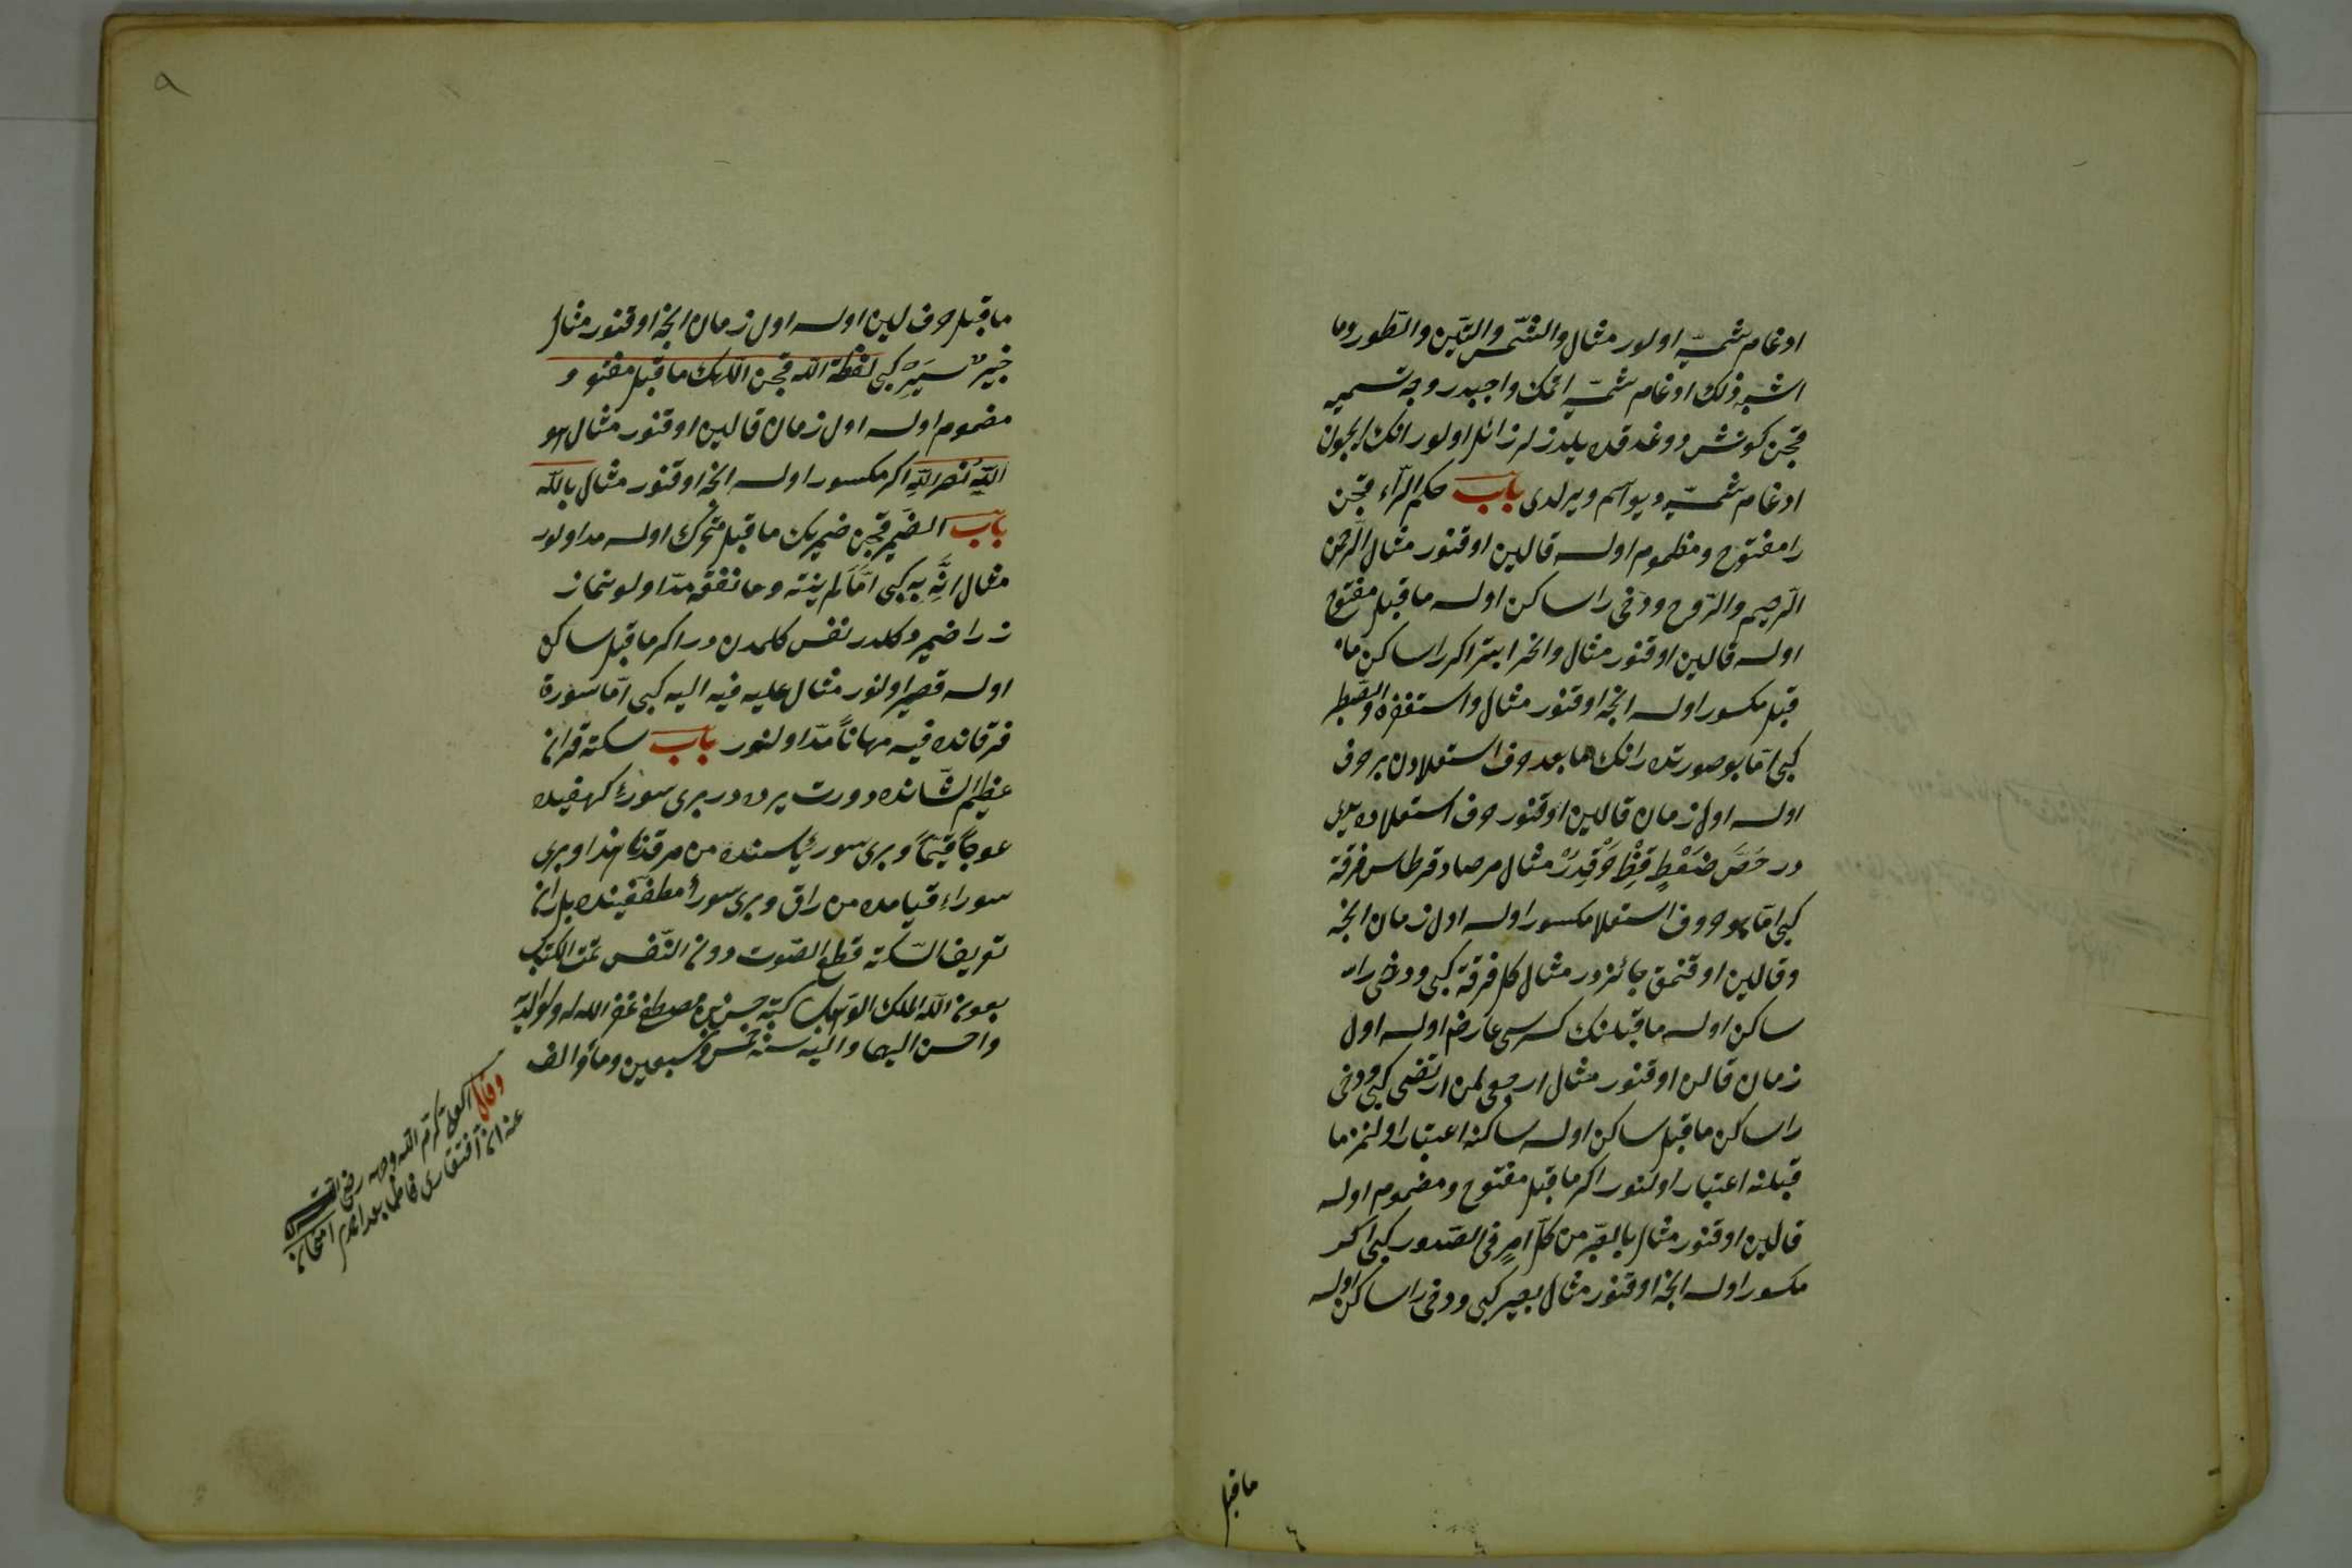 ادغام شمسیّه اولور مثال والشّمس والتّین والطّور وما
اشبه ذلك ادغام شمسیّه اتمك واجبدر وجه تسمیه
قچن كونش دوغدقده یلدزلر زائل اولور انك ایچون
ادغام شمسیّه دیو آسم ویرلدی باب حكم الرّاء قچن
را مفتوح ومظموم اولسه قالین اوقنور مثال الرّحمن
الرّحیم والرّوح ودخی را ساكن اولسه ماقبل مفتوح
اولسه قالین اوقنور مثال وانحر ابتر اكر را ساكن ما
قبل مكسور اولسه انجه اوقنور مثال واستغفره واصطبر
كبی امّا بو صورتده رانك ما بعد حرف استعلادن بر حرف
اولسه اول زمان قالین اوقنور حرف استعلاده یدی
در خصّ ضغط قظ وقیدر مثال مرصاد قرطاس فرقة
كبی امّا بو حروف استعلا مكسور اولسه اول زمان انجه
وقالین اوقنمق جائزدر مثال كل فرقة كبی ودخی را
ساكن اولسه ماقبلنك كسرسی عارض اولسه اول
زمان قالن اوقنور مثال ارجعی لمن ارتضی كبی ودخی
را ساكن ماقبل ساكن اولسه ساكنه اعتبار اولنمز ما
قبلنه اعتبار اولنور اكر ماقبل مفتوح ومضموم اولسه
قالین اوقنور مثال بالصّبر من كلّ امر فی الصّدور كبی اكر
مكسور اولسه انجه اوقنور مثال بعیر كبی ودخی را ساكن اولسه
ماقبل
ماقبل حرف لین اولسه اول زمان انجه اوقنور مثال
خبیر سیر كبی لفظة الله قچن اللهك ماقبل مفتوح و
مضموم اولسه اول زمان قالین اوقنور مثال هو
الله نصر الله اكر مكسور اولسه انجه اوقنور مثال بالله
باب الضمیر قچن ضمیرك ماقبل متحرك اولسه مد اولور
مثال انّه به كبی امّا لم ینته وما نفقه مدّ اولونماز
زرا ضمیر دكلدر نفس كلمدن در اكر ماقبل ساكن
اولسه قصر اولنور مثال علیه فیه الیه كبی امّا سورة
فرقانده فیه مهاناً مدّ اولنور باب سكته قرآن
عظیم الشّانده دورت یرده در بری سورۀ كهفیده
عوجاً قیّماً وبری سورۀ یاسنده من مرقدنا هذا وبری
سورۀ قیامده من راق وبری سورۀ مطفّفینده بل ران
تعریف السّكته قطع الصّوت دون النّفس تمت الكتاب
بعون الله الملك الوهاب كتبه حسن بن مصطفی غفر الله له ولوالدیه
واحسن الیهما والیه سنه خمس وسبعین ومأة والف
وقال كرّم الله وجهه رضی
عنه ان افتقاری فاطما بعد احمد
۹